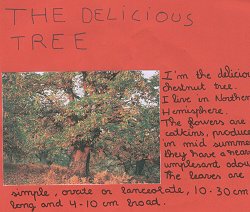 THE DELICIOUS
TREE
I'm the delicious
chestnut tree.
I live in Northern
Hemisphere.
The flowers are
catkins, produced
in mid summer
they have a heavy
unpleasant odour
The leaves are
simple, ovate or lanceolate, 10-30 cm
long and 4-10 cm broad.